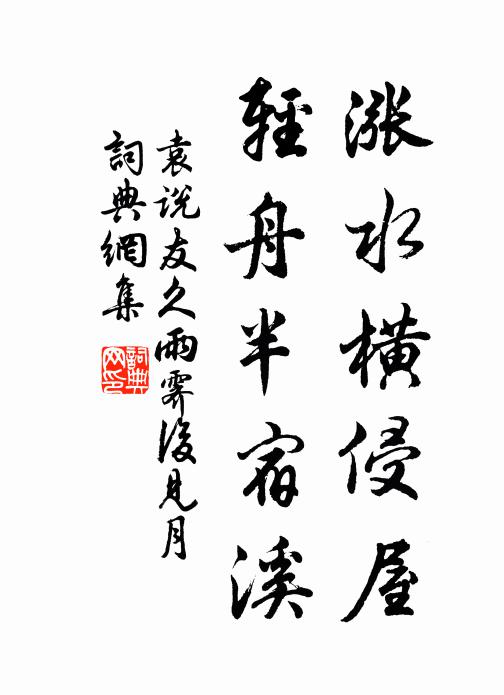 漲水橫侵屋
輕舟半宿溪
袁说友久雨霽後見月
詞典網集
詞典网印